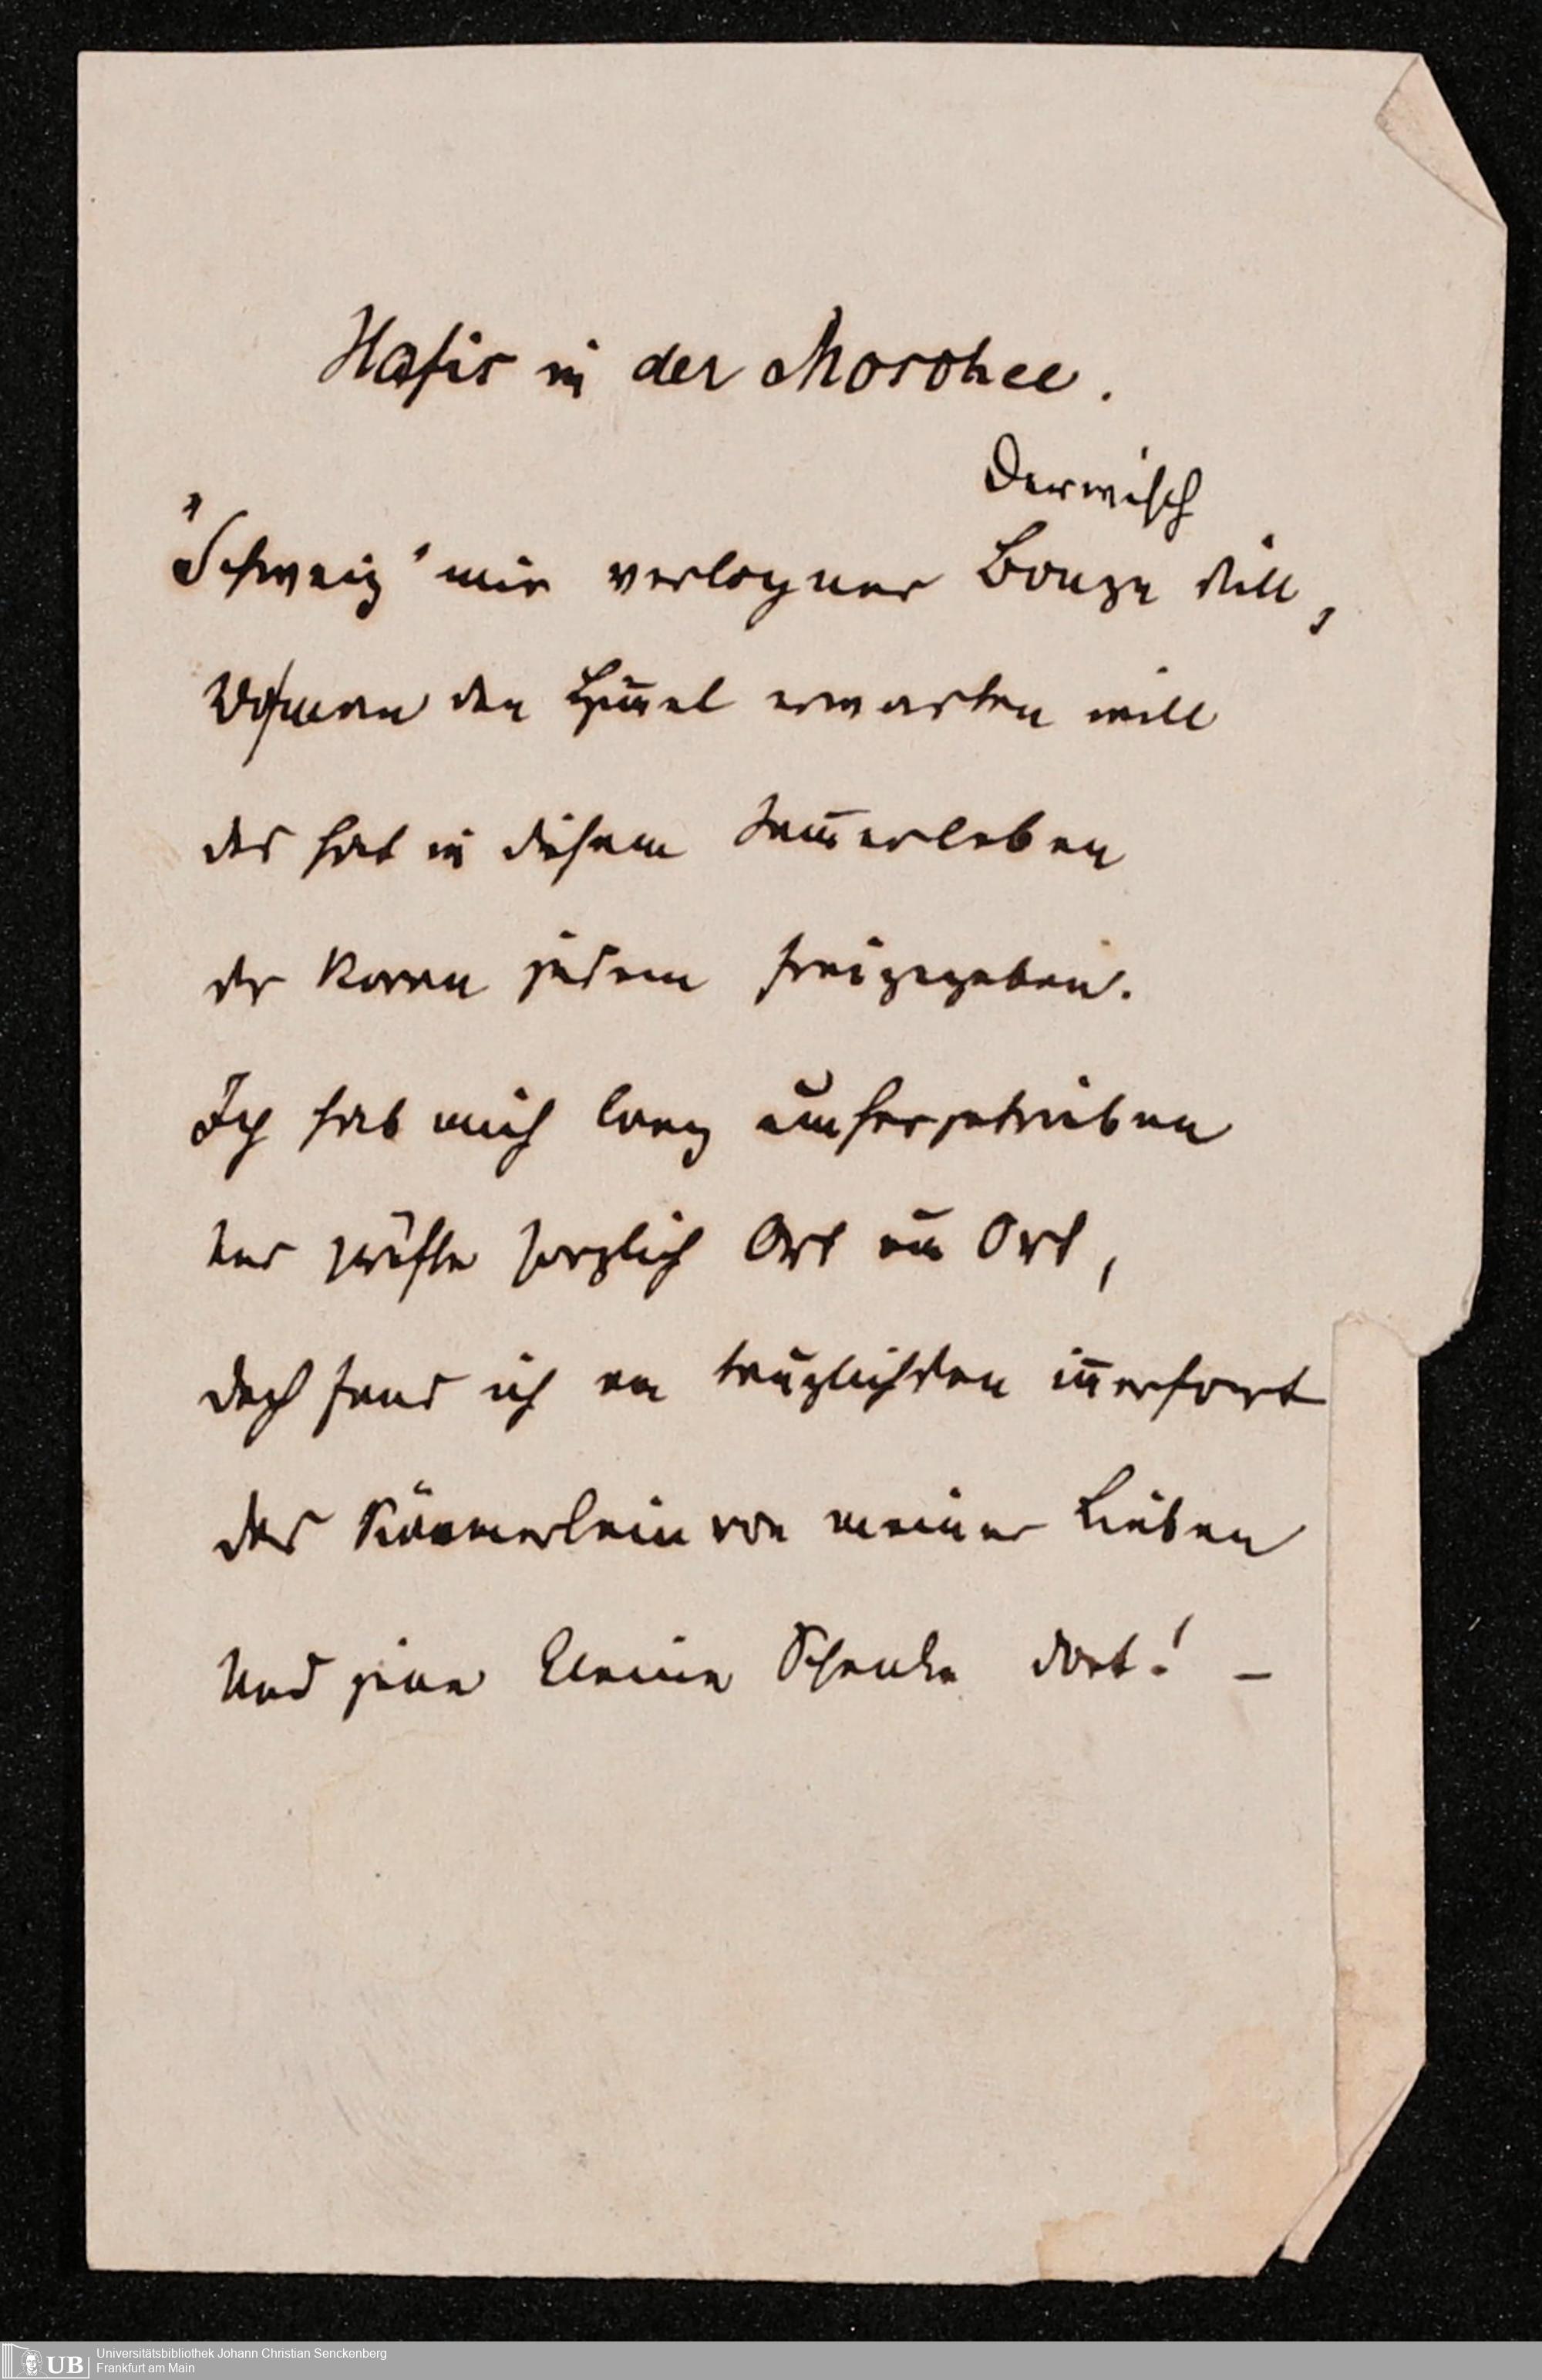 Hafis in der Moschee.
Derwisch
"Schweig" mir verlogner Bonze still,
Wo man den Him̄el erwarten will
das hat in diesem Jam̄erleben
der Koran jedem freigegeben.
Ich hab mich lang umhergetrieben
und prüfte sorglich Ort um Ort,
doch fand ich am tauglichsten im̄erfort
das Kämmerlein von meiner Lieben
Und jene kleine Schenke dort! –
UB
Universitätsbibliothek Johann Christian Senckenberg
Frankfurt am Main